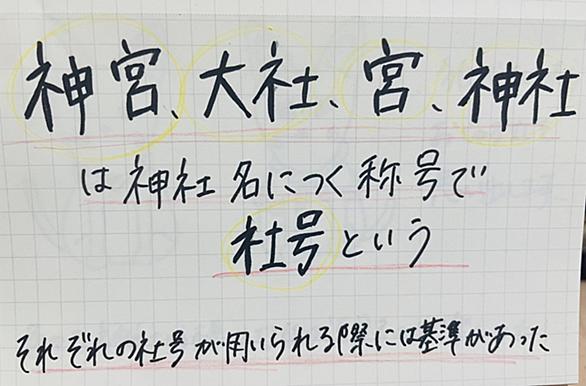 神宮、大社、宮、神社
は神社名につく称号で
社号という
それぞれの社号が用いられる際には基準があった